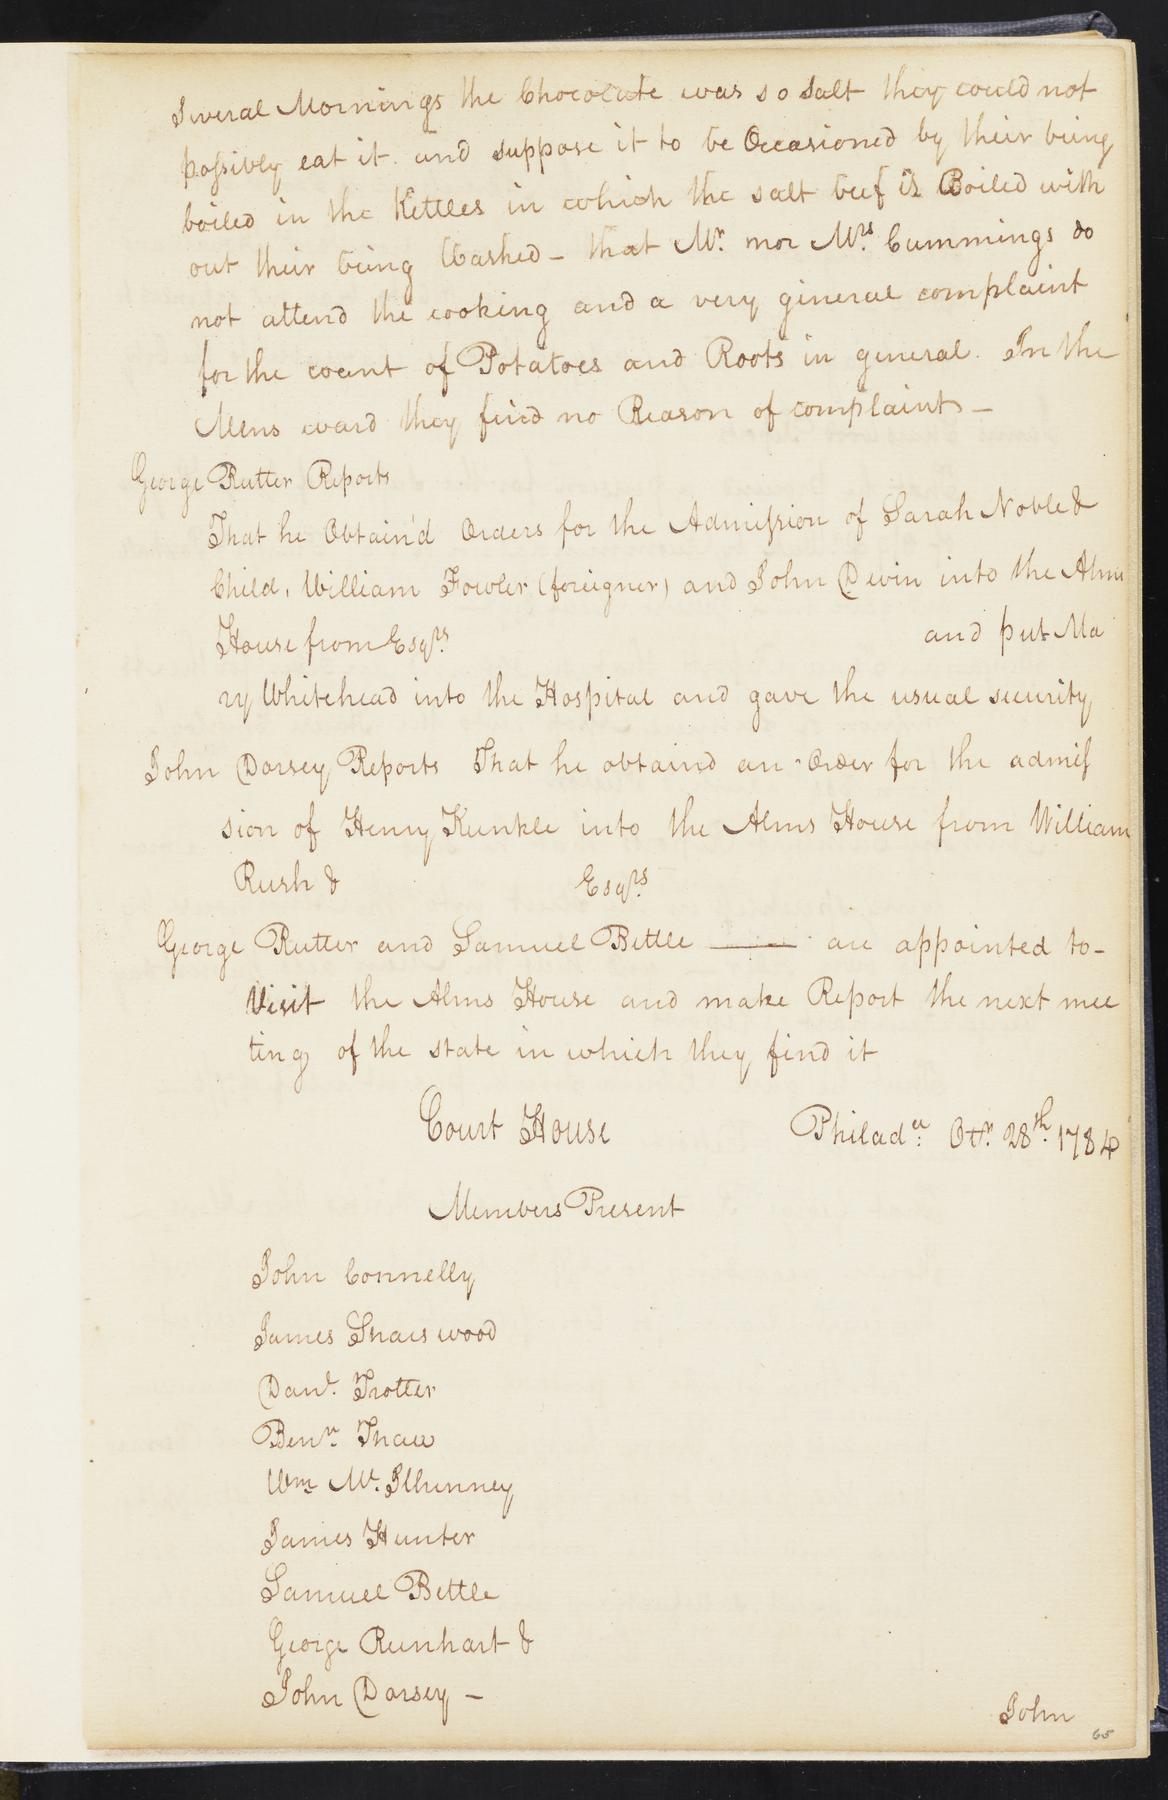 Several Mornings the Chocolate was so Salt they could not
possibly eat it. and suppose it to be Occasioned by their being
boiled in the Kettles in which the salt beef is Boiled with
out their being Washed - that Mr. nor Mrs. Cummings do
not attend the cooking and a very general complaint
for the want of Potatoes and Roots in general. In the
Mens ward they find no Reason of complaint -
George Rutter Reports
That he Obtain'd Orders for the Admission of Sarah Noble &
Child, William Fowler (foreigner) and John Devin into the Alms
House from Esqrs. and put Ma
ry Whitehead into the Hospital and gave the usual security
John Dorsey Reports That he obtaind an Order for the admis
sion of Henry Kunkle into the Alms House from William
Rush & Esqrs.
George Rutter and Samuel Bettle —— are appointed to-
Visit the Alms House and make Report the next mee
ting of the state in which they find it
Court House Philada. Otr. 28th. 1784
Members Present
John Connelly
James Sharswood
Danl. Trotter
Benn. Thaw
Wm. Mc. Ilhenney
James Hunter
Samuel Bettle
George Reinhart &
John Dorsey -
John
65